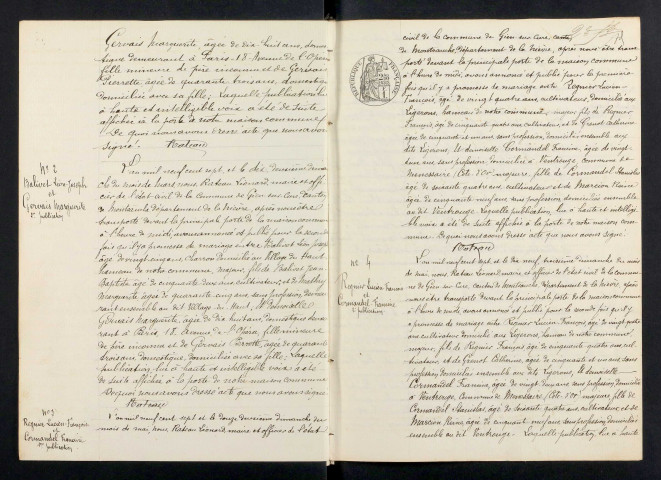 Gervais Marguerite, âgée de dix huit ans, domes-
tique demeurant à Paris, 18 Avenue de l'Opéra
fille mineure de père inconnu et de Gervais
Pierrette, âgée de quarante trois ans, domestique
domiciliée avec sa fille; Laquelle publication lue
à haute et intelligible voix a été de suite
affichée à la porte de notre maison commune
De quoi nous avons dressé acte que nous avons
signé. Rateau
N° 2
Balivet Léon Joseph
et
Gervais Marguerite
2e publication
L'an mil neuf cent sept et le dix, deuxième diman-
che du mois de mars, nous Rateau Léonard, maire et offi-
cier de l'état civil de la commune de Gien sur Cure, canton
de Montsauche, département de la Nièvre, après nous être
transporté devant la principale porte de la maison commune
à l'heure de midi, avons annoncé et publié pour la secon
fois qu'il y a promesse de mariage entre Balivet Léon Joseph
âgé de vingt cinq ans, charron domicilié au village du Haut
hameau de notre commune, majeur, fils de Balivet Jean
Baptiste âgé de cinquante deux ans cultivateur, et de
Marguerite âgée de quarante cinq ans, sans profession, demeu-
rant ensemble au dit village du Haut,
Gervais Marguerite, âgée de dix huit ans, domestique demeu-
rant à Paris, 18 Avenue de l'Opéra, fille mineure
de père inconnu et de Gervais Pierrette, âgée de quarante
trois ans, domestique, domiciliée avec sa fille; Laquelle
publication, lue à haute et intelligible voix a été
de suite affichée à la porte de notre maison commune
De quoi nous avons dressé acte que nous avons signé
Rateau
N° 3
Regnier Lucien François
et
Cormandel Francine
1re publication
L'an mil neuf cent sept et le douze deuxième dimanche du
mois de mai, nous Rateau Léonard, maire et officier de l'état
civil de la commune de Gien sur Cure, canton
de Montsauche, département de la Nièvre, après nous être trans-
porté devant la principale porte de la maison commune
à l'heure de midi, avons annoncé et publié pour la première
fois qu'il y a promesse de mariage entre Regnier Lucien
François, âgé de vingt quatre ans, cultivateur, domicilié aux
Ligerons, hameau de notre commune, majeur, fils de Regnier
François, âgé de cinquante quatre ans cultivateur, et de Catherine
âgée de cinquante et un ans, sans profession, domiciliés ensemble aux
dits Ligerons, Et demoiselle Cormandel Francine, âgée de vingt
une ans sans profession, domiciliée à Ventrouge commune de
Menessaire (Côte d'Or) majeure, fille de Cormandel Stanislas
âgé de soixante quatre ans, cultivateur et de Marceau Reine
âgée de cinquante neuf ans, sans profession domiciliés ensemble
au dit Ventrouge. Laquelle publication, lue à haute et intelligi-
ble voix a été de suite affichée à la porte de notre maison com-
mune. De quoi nous avons dressé acte que nous avons signé
Rateau
N° 4
Regnier Lucien François
et
Cormandel Francine
2e publication
L'an mil neuf cent sept et le dix neuf, troisième dimanche du mois
de mai, nous Rateau Léonard, maire et officier de l'état civil de la commune
de Gien sur Cure, canton de Montsauche département de la Nièvre, après
nous être transporté devant la principale porte de la maison commune
à l'heure de midi, avons annoncé et publié pour la seconde fois qu'il y
a promesse de mariage entre Regnier Lucien François, âgé de vingt quatre
ans cultivateur domicilié aux Ligerons, hameau de notre commune
majeur, fils de Regnier François âgé de cinquante quatre ans, cul-
tivateur, et de Catherine, âgée de cinquante et un ans, sans
profession, domiciliés ensemble aux dits Ligerons, Et demoiselle
Cormandel Francine, âgée de vingt une ans sans profession, domiciliée
à Ventrouge, commune de Menessaire (Côte d'Or) majeure, fille de
Cormandel Stanislas, âgé de soixante quatre ans, cultivateur, et de
Marceau Reine, âgée de cinquante neuf ans, sans profession, domiciliés
ensemble au dit Ventrouge. Laquelle publication, lue à haute